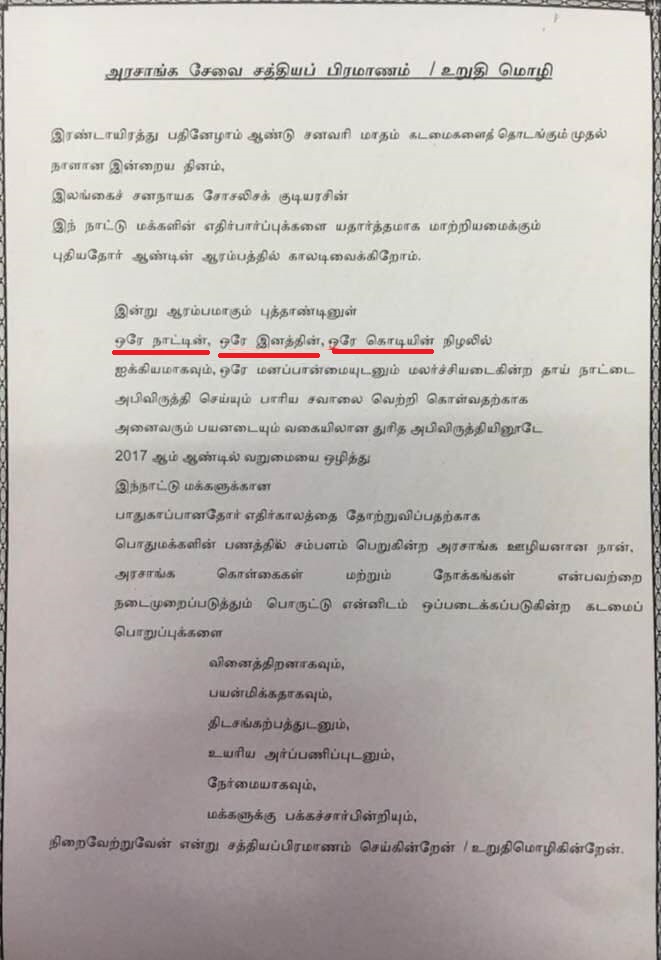 அரசாங்க சேவை சத்தியப் பிரமாணம் / உறுதி மொழி
இரண்டாயிரத்து பதினேழாம் ஆண்டு சனவரி மாதம் கடமைகளைத் தொடங்கும் முதல்
நாளான இன்றைய தினம்,
இலங்கைச் சனநாயக சோசலிசக் குடியரசின்
இந் நாட்டு மக்களின் எதிர்பார்ப்புக்களை யதார்த்தமாக மாற்றியமைக்கும்
புதியதோர் ஆண்டின் ஆரம்பத்தில் காலடிவைக்கிறோம்.
இன்று ஆரம்பமாகும் புத்தாண்டினுள்
ஒரே நாட்டின், ஒரே இனத்தின், ஒரே கொடியின் நிழலில்
ஐக்கியமாகவும், ஒரே மனப்பான்மையுடனும் மலர்ச்சியடைகின்ற தாய் நாட்டை
அபிவிருத்தி செய்யும் பாரிய சவாலை வெற்றி கொள்வதற்காக
அனைவரும் பயனடையும் வகையிலான துரித அபிவிருத்தியினூடே
2017 ஆம் ஆண்டில் வறுமையை ஒழித்து
இந்நாட்டு மக்களுக்கான
பாதுகாப்பானதோர் எதிர்காலத்தை தோற்றுவிப்பதற்காக
பொதுமக்களின் பணத்தில் சம்பளம் பெறுகின்ற அரசாங்க ஊழியனான நான்,
அரசாங்க கொள்கைகள் மற்றும் நோக்கங்கள் என்பவற்றை
நடைமுறைப்படுத்தும் பொருட்டு என்னிடம் ஒப்படைக்கப்படுகின்ற கடமைப்
பொறுப்புக்களை
வினைத்திறனாகவும்,
பயன்மிக்கதாகவும்,
திடசங்கற்பத்துடனும்,
உயரிய அர்ப்பணிப்புடனும்,
நேர்மையாகவும்,
மக்களுக்கு பக்கச்சார்பின்றியும்,
நிறைவேற்றுவேன் என்று சத்தியப்பிரமாணம் செய்கின்றேன் / உறுதிமொழிகின்றேன்.